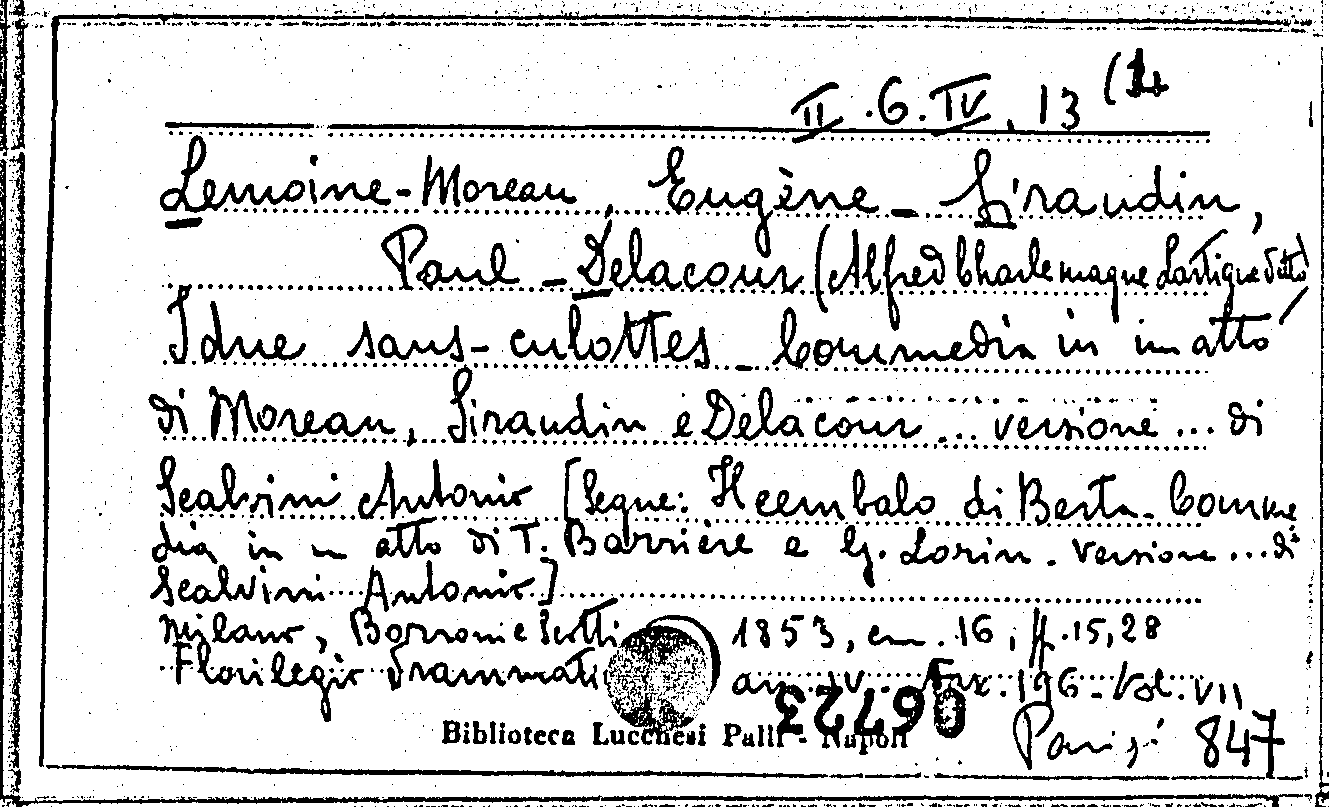 II.6.IV,13 (14
Lemoine-Moreau, Eugène - Siraudin,
Paul - Delacour (Alfred Charlemagne Lartigue detto)
I due sans-culottes - Commedia in un atto
di Moreau, Siraudin e Delacour... versione... di
Scalvini Antonio [Segue: Il cembalo di Berta - Comme
dia in un atto di T. Barrière e G. Lorin. Versione... di
Scalvini Antonio]
Milano, Borroni e Scotti 1853, cm. 16, pp. 15, 28
Florilegio drammati an. IV. Fasc. 196 - Vol. VII
06723
Biblioteca Lucchesi Palli - Napoli
Parigi 847